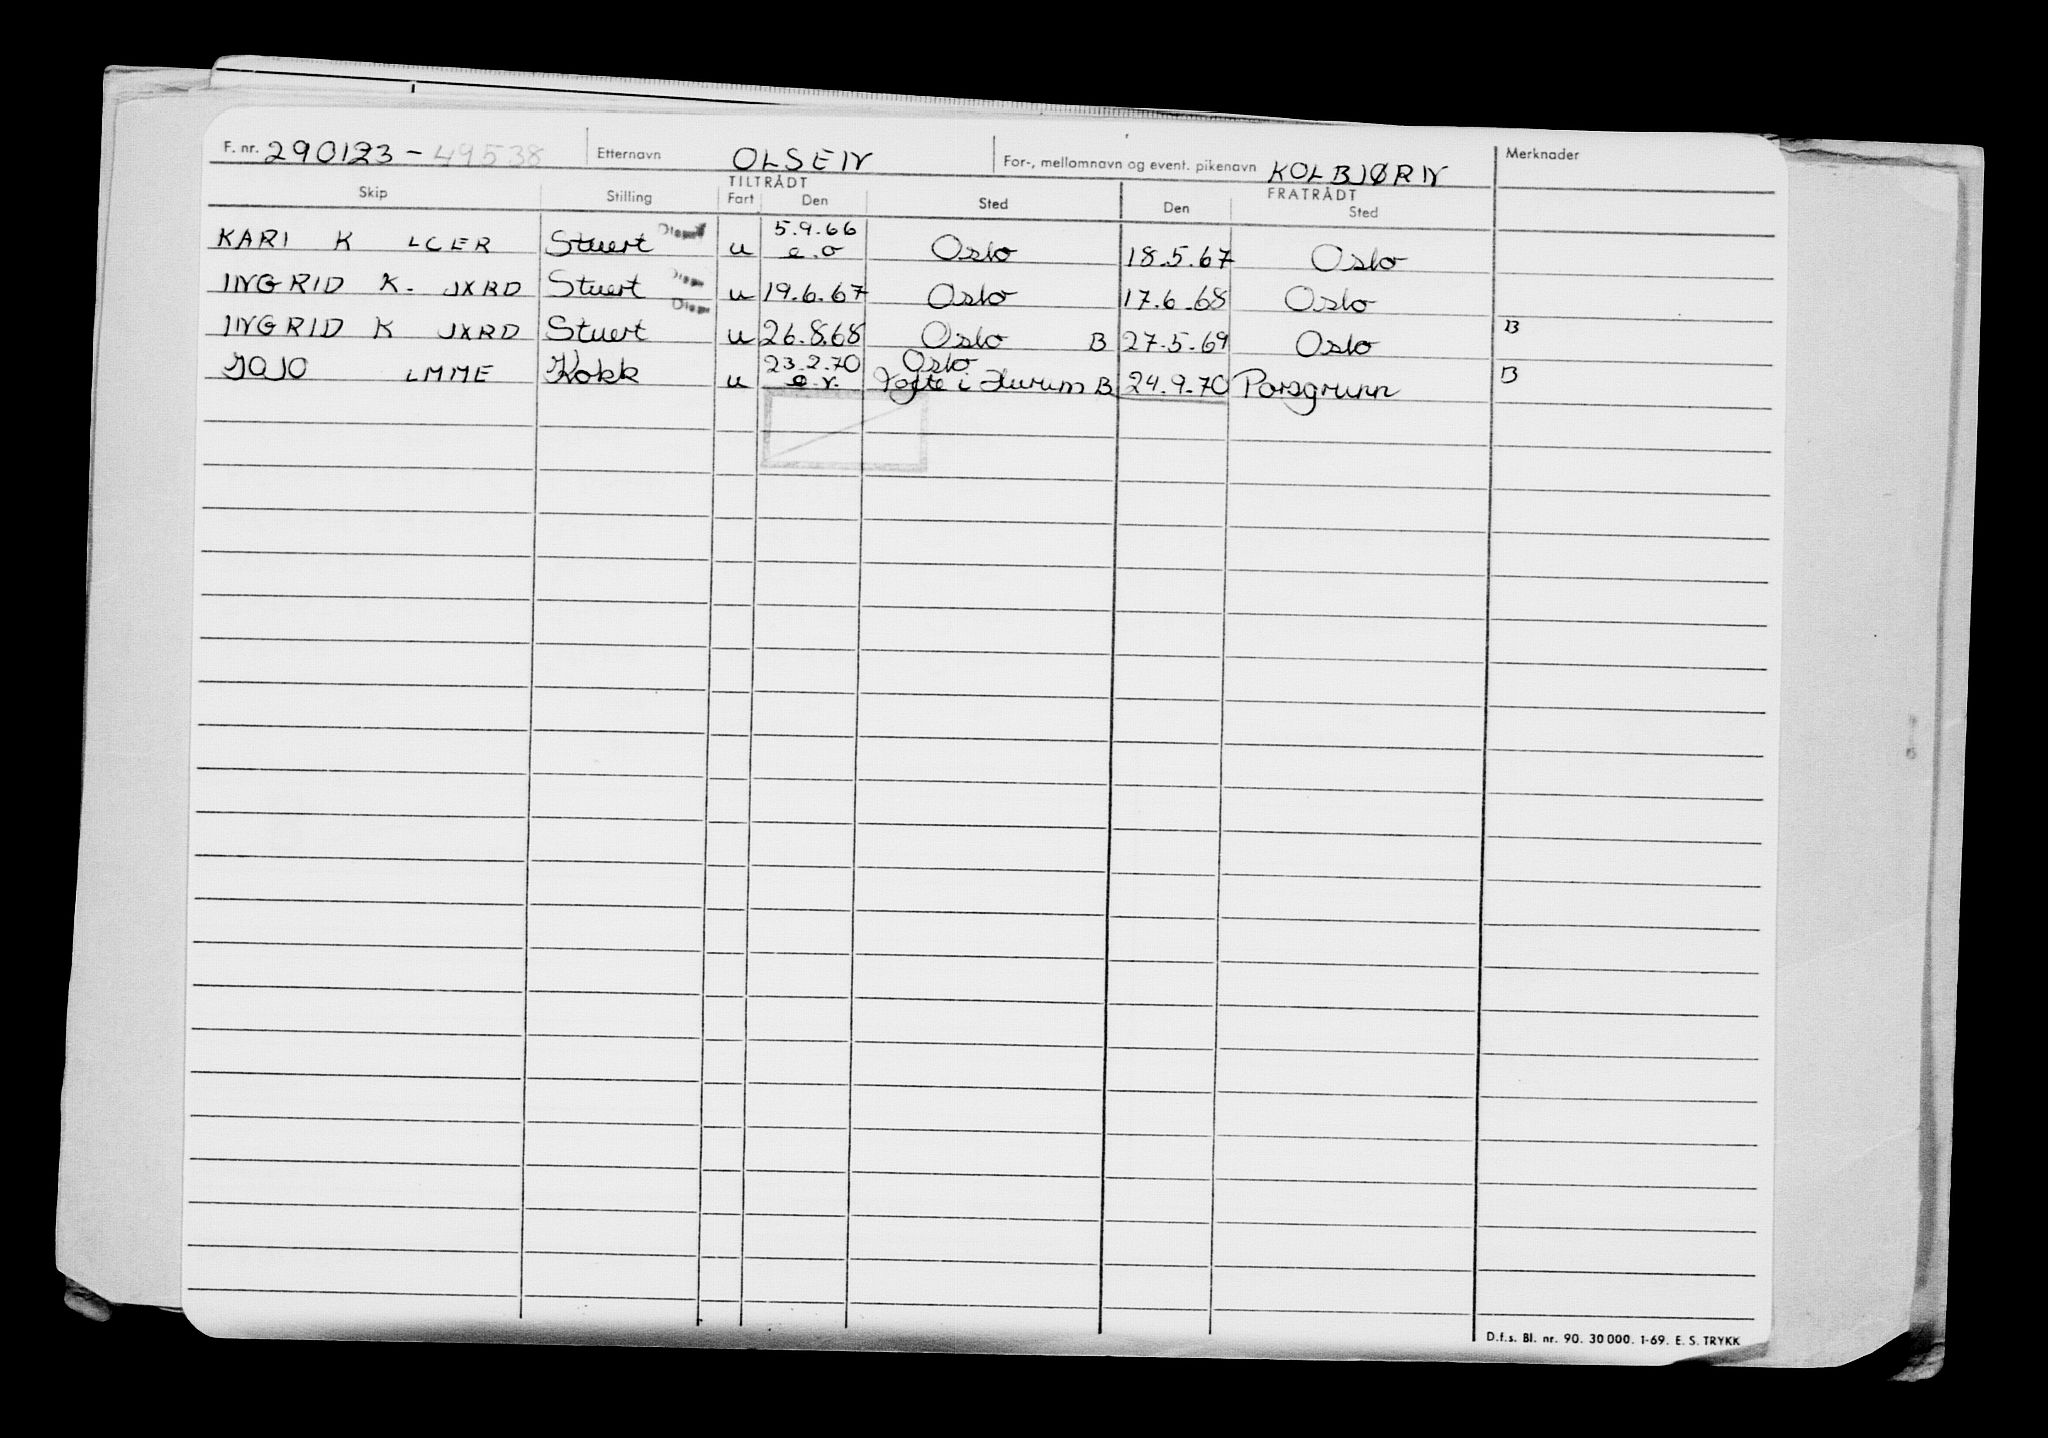 F. nr. 290123-49538 Etternavn OLSEN For-, mellomnavn og event. pikenavn KOLBJØRN Merknader
TILTRÅDT FRATRÅDT
Skip Stilling Fart Den Sted Den Sted
KARI K LCER Stuert u 5.9.66 e.o Oslo 18.5.67 Oslo
INGRID K. JXRD Stuert u 19.6.67 Oslo 17.6.68 Oslo
INGRID K JXRD Stuert u 26.8.68 Oslo B 27.5.69 Oslo B
JOJO LMME Kokk u 23.2.70 e.r. Oslo Tofte i Hurum B 24.9.70 Porsgrunn B
D.f.s. Bl. nr. 90. 30 000. 1-69. E. S. TRYKK